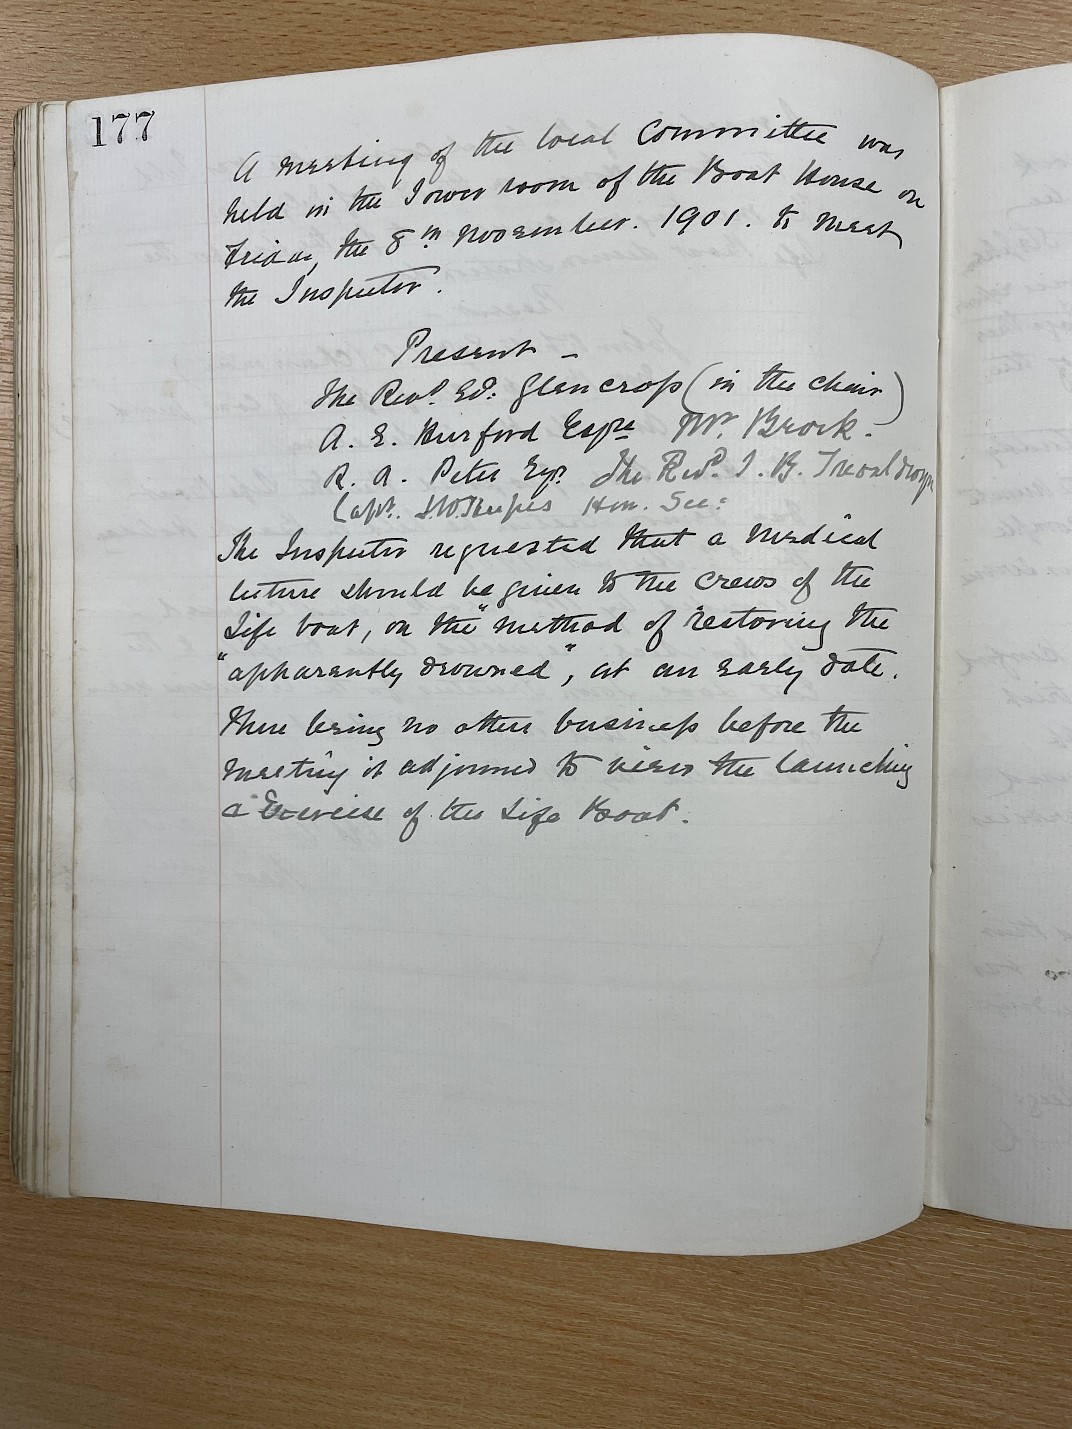 177
A meeting of the local Committee was
held in the Tower room of the Boat House on
Friday the 8th November. 1901. to meet
the Inspector.
Present –
The Revd. Ed. Glencross (in the chair)
A. E. Hurford Esqre Mr. Brock.
R. A. Peter Esqr. The Revd. J. B.
Capt. Hon. Sec:
The Inspector requested that a medical
lecture should be given to the crews of the
Life boat, on the "method of restoring the
"apparently drowned", at an early date.
There being no other business before the
meeting it adjourned to view the launching
& Exercise of the Life Boat.